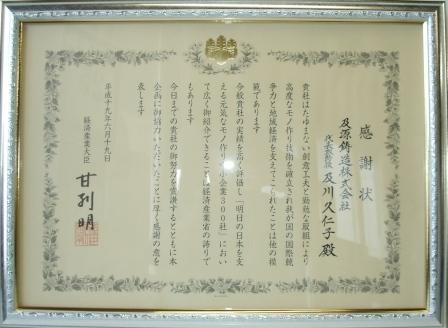 感謝状
及源鋳造株式会社
代表取締役 及川久仁子 殿
貴社はたゆまない創意工夫と勤勉な取組により
高度なモノ作り技術を確立され我が国の国際競
争力と地域経済を支えてこられたことは他の模
範であります
今般貴社の実績を高く評価し「明日の日本を支
える元気なモノ作り中小企業300社」におい
て広く御紹介できることは経済産業省の誇りで
もあります
今日までの貴社の御努力を賞讃するとともに本
企画に御協力いただいたことに厚く感謝の意を
表します
平成十九年六月十九日
経済産業大臣 甘利明